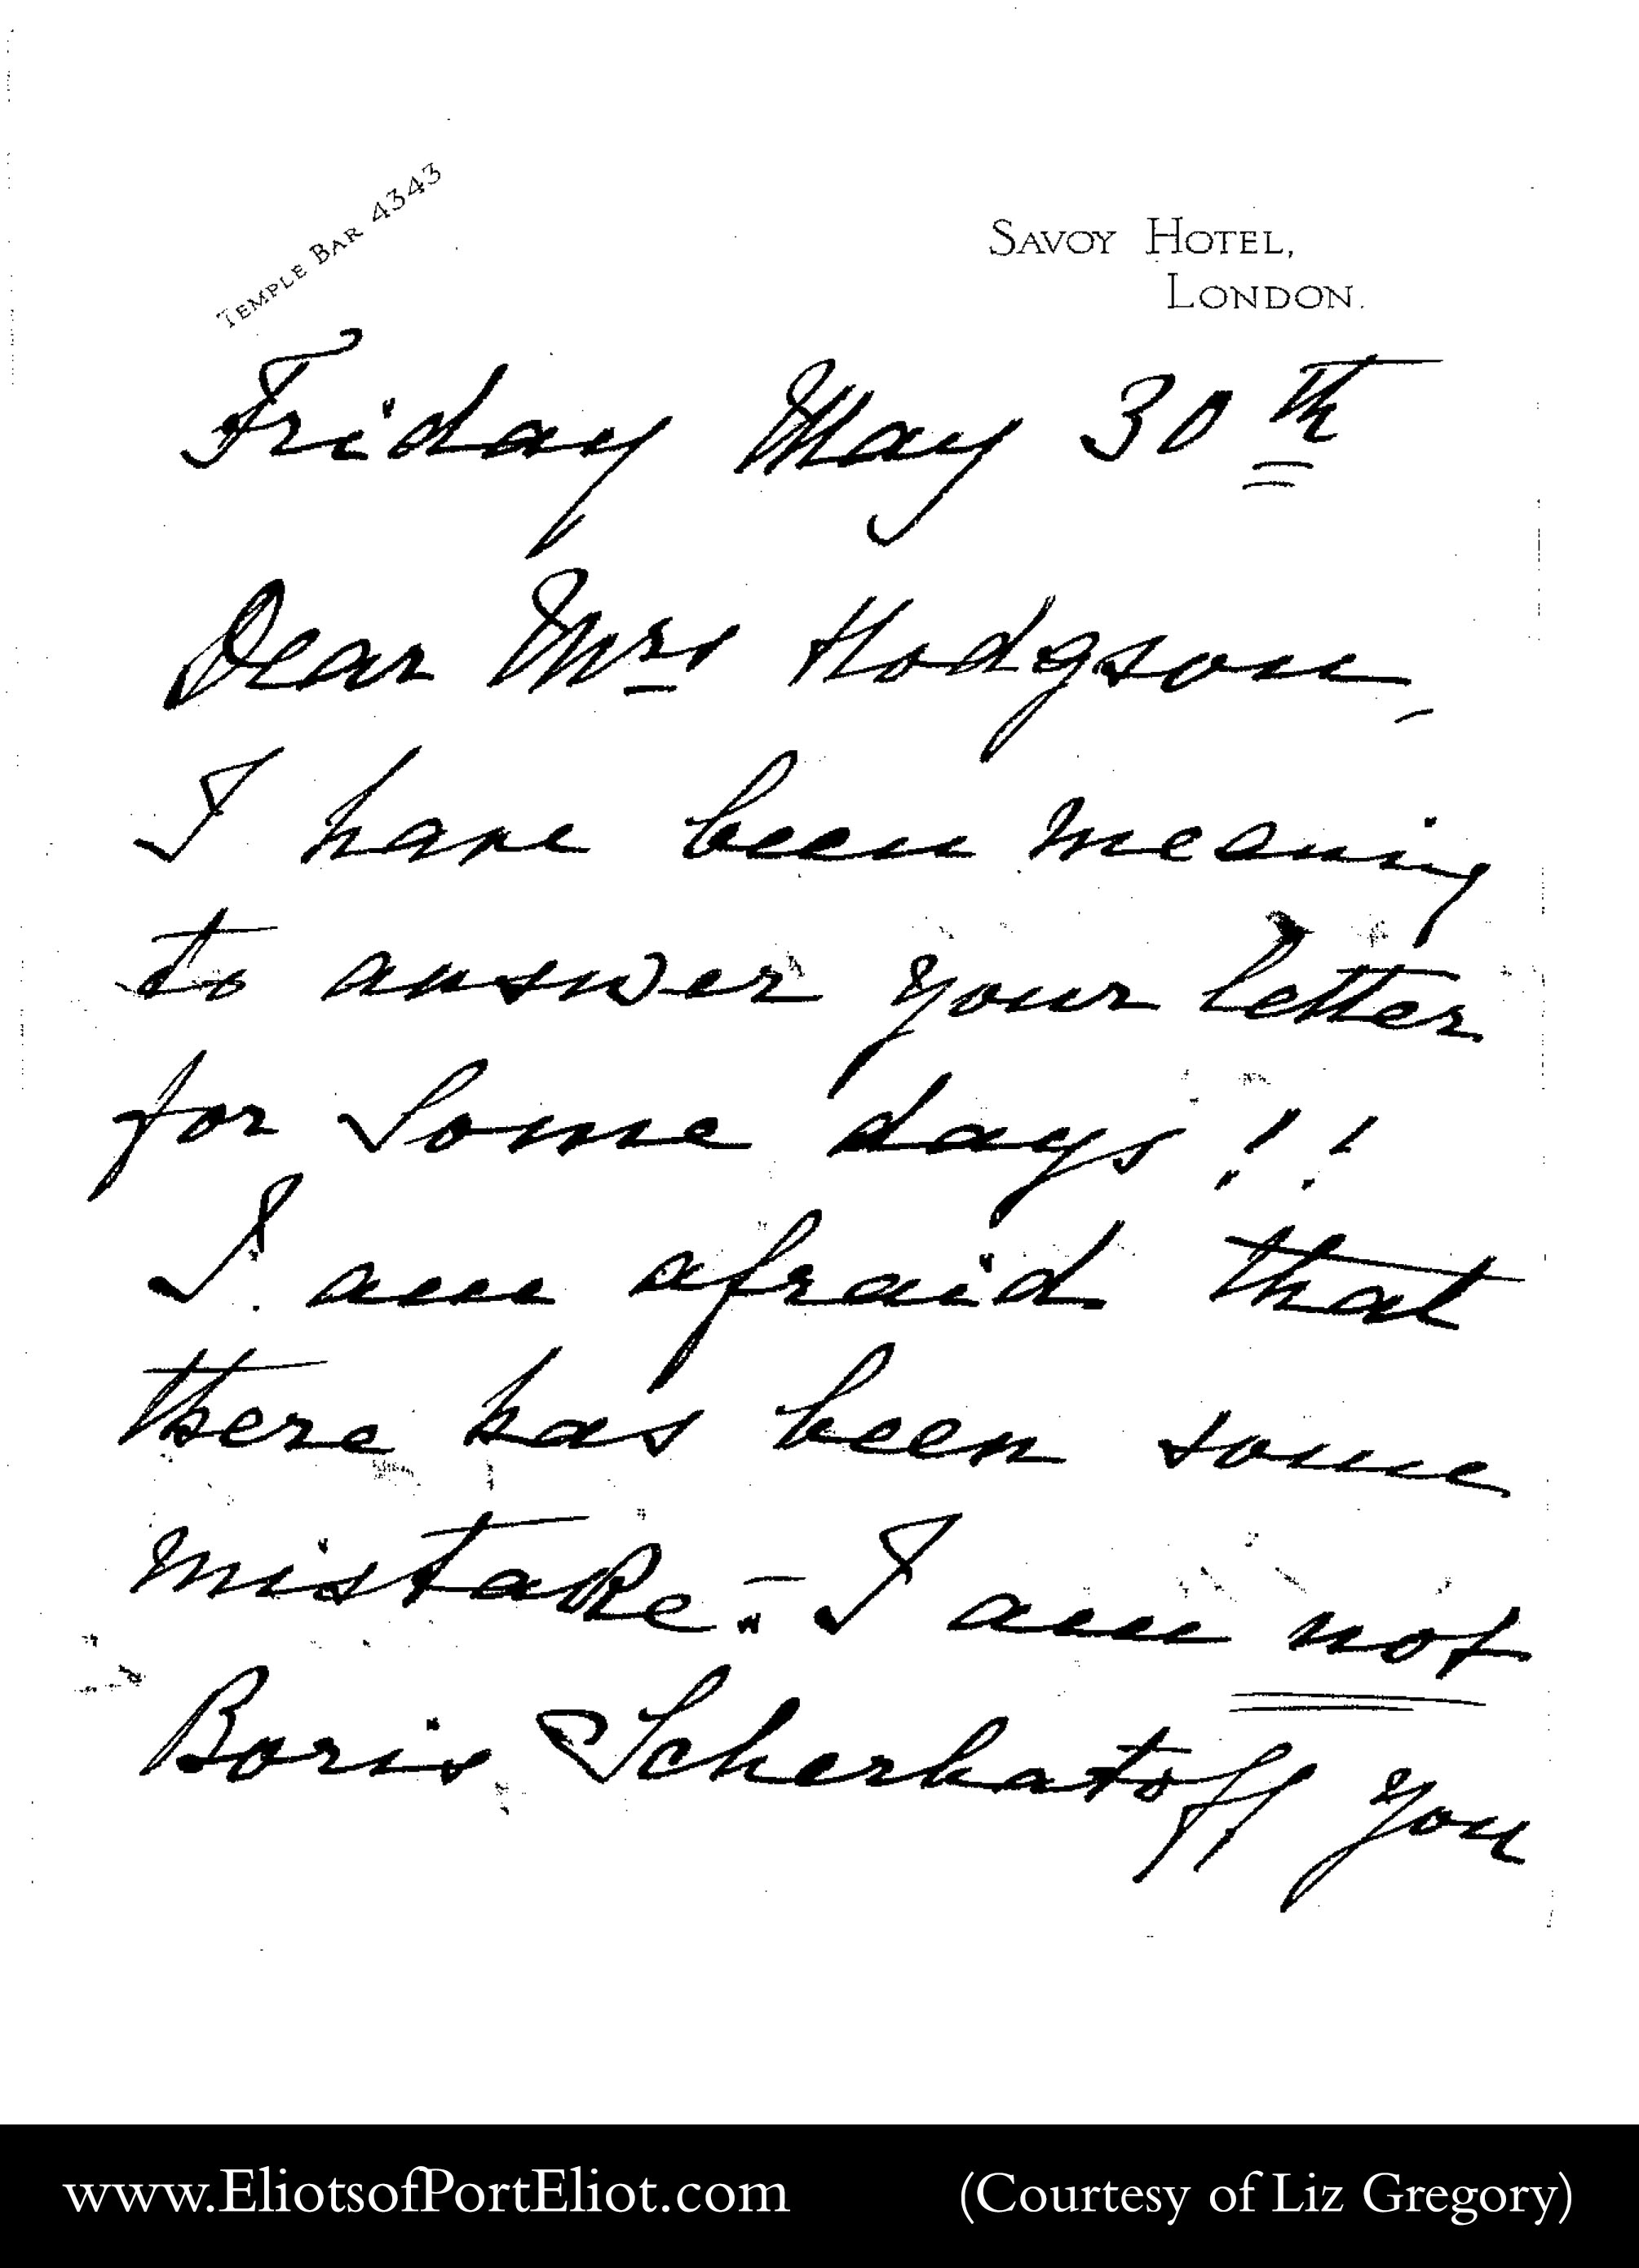 TEMPLE BAR 4343
SAVOY HOTEL,
LONDON.
Friday May 30th
Dear Mrs Hodgson,
I have been meaning
to answer your letter
for some days!!
I am afraid that
there has been some
mistake:- I am not
Boris Scherbatoff you
www.EliotsofPortEliot.com
(Courtesy of Liz Gregory)